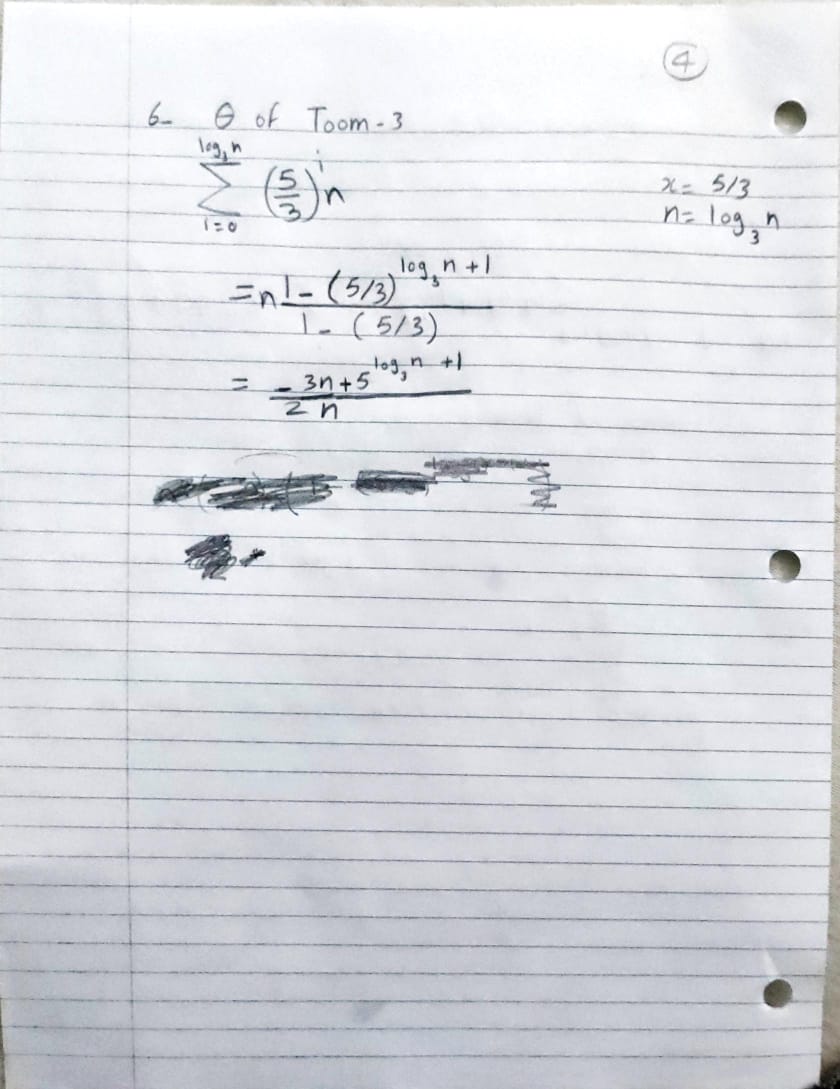 4
6- Θ of Toom-3
log₃n
∑ (5/3)ⁱ n
i=0
x= 5/3
n= log₃n
= n 1 - (5/3)^(log₃n +1)
1 - (5/3)
= - 3n + 5^(log₃n +1)
2 n